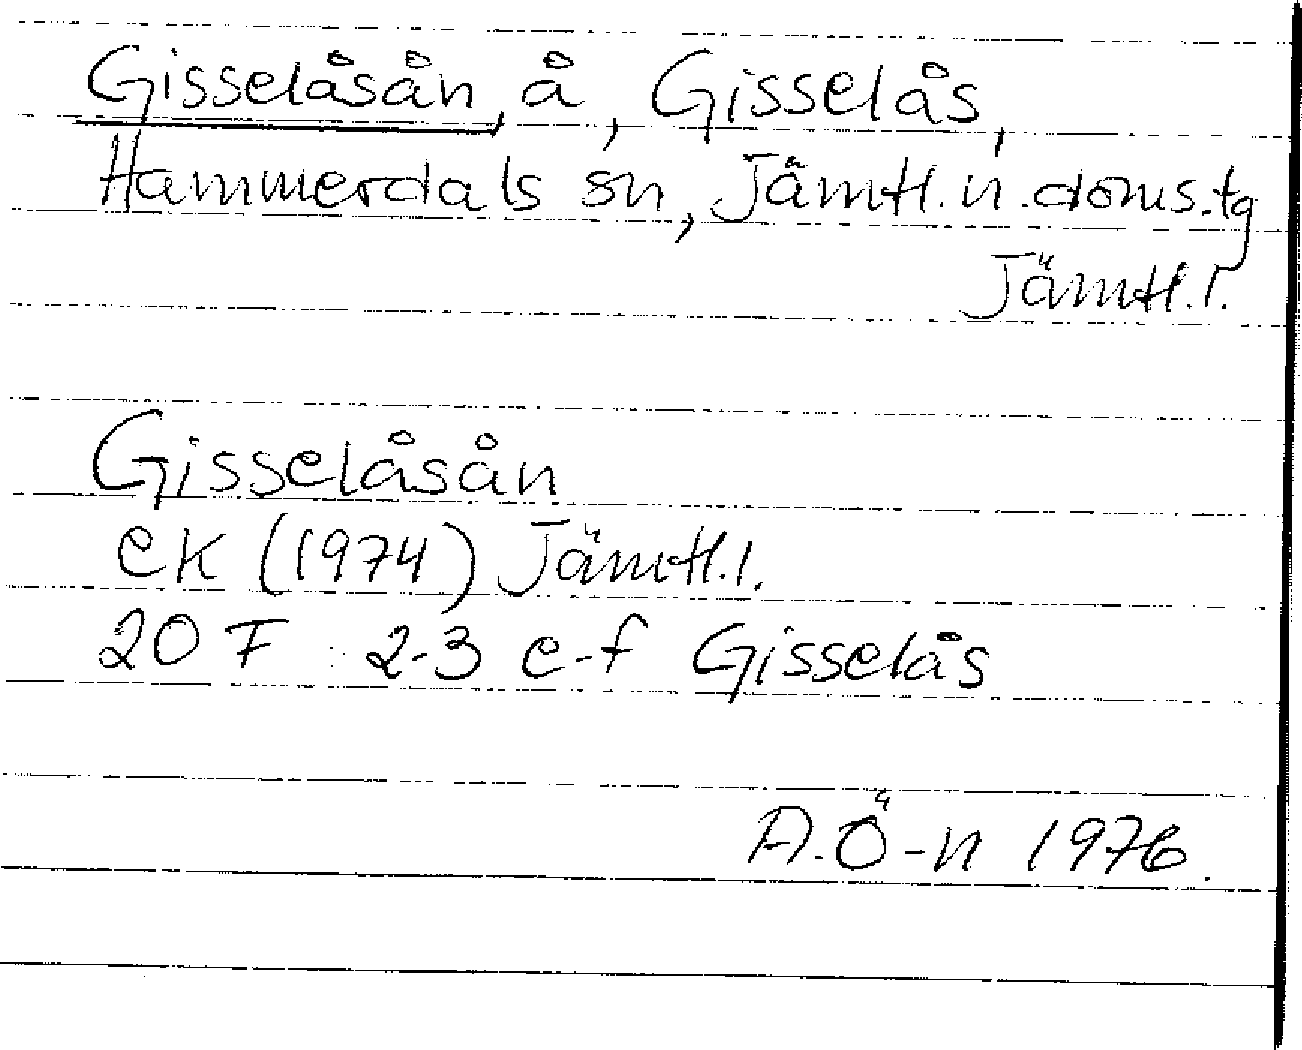 Gisselåsån, å, Gisselås,
Hammerdals sn, Jämtl. n. doms. tg
Jämtl. l.
Gisselåsån
ek (1974) Jämtl. l.
20 F 2-3 e-f Gisselås
A. Ö-n 1976.